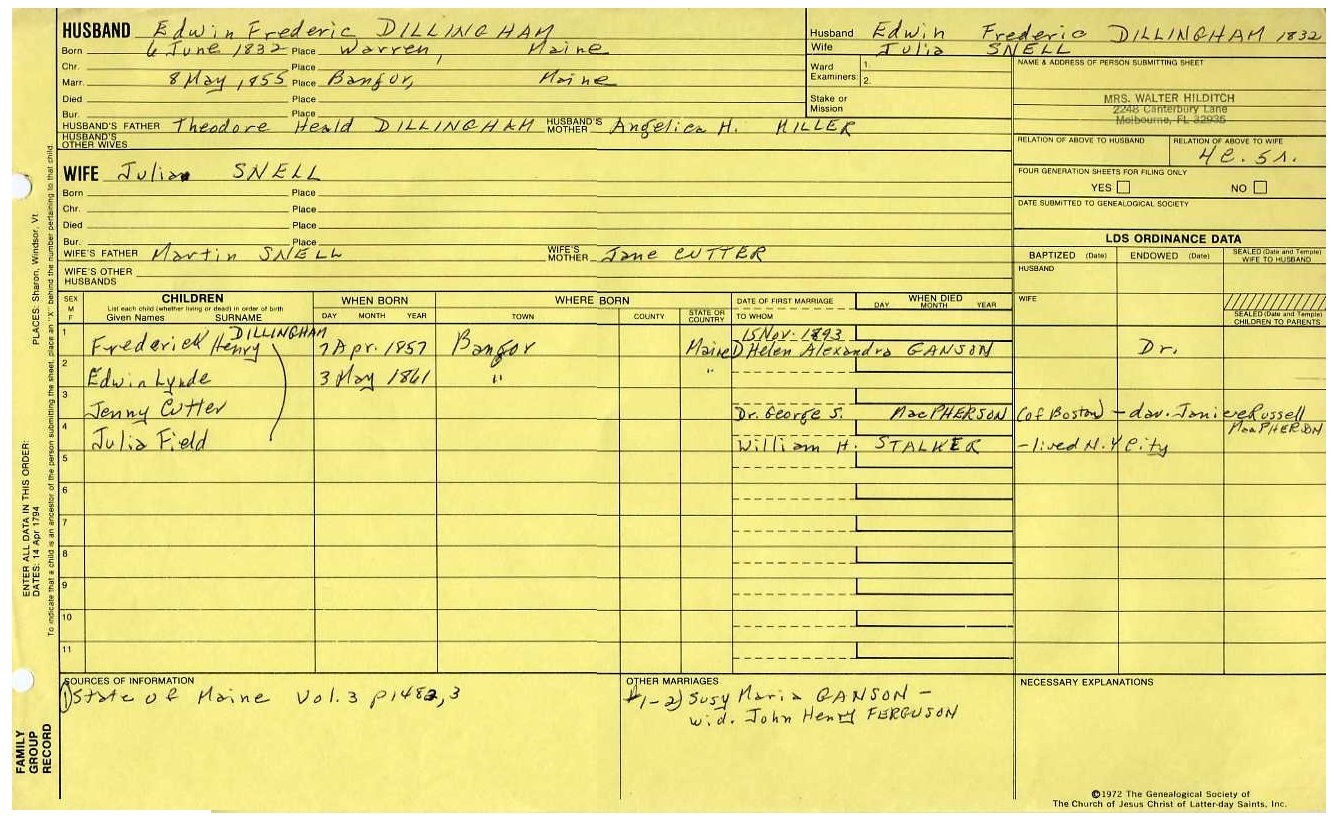 HUSBAND Edwin Frederic DILLINGHAM
Born 6 June 1832 Place Warren, Maine
Chr. Place
Marr. 8 May 1855 Place Bangor, Maine
Died Place
Bur. Place
HUSBAND'S FATHER Theodore Heald DILLINGHAM HUSBAND'S MOTHER Angelica H. MILLER
HUSBAND'S OTHER WIVES
Husband Edwin Frederic DILLINGHAM 1832
Wife Julia SNELL
Ward Examiners: 1. 2.
Stake or Mission
NAME & ADDRESS OF PERSON SUBMITTING SHEET
MRS. WALTER HILDITCH
2248 Canterbury Lane
Melbourne, FL 32935
RELATION OF ABOVE TO HUSBAND RELATION OF ABOVE TO WIFE
4c. 5r.
FOUR GENERATION SHEETS FOR FILING ONLY
YES NO
DATE SUBMITTED TO GENEALOGICAL SOCIETY
WIFE Julia SNELL
Born Place
Chr. Place
Died Place
Bur. Place
WIFE'S FATHER Martin SNELL WIFE'S MOTHER Jane CUTTER
WIFE'S OTHER HUSBANDS
LDS ORDINANCE DATA
BAPTIZED (Date) ENDOWED (Date) SEALED (Date and Temple) WIFE TO HUSBAND
HUSBAND
WIFE
SEALED (Date and Temple) CHILDREN TO PARENTS
SEX M F CHILDREN WHEN BORN WHERE BORN DATE OF FIRST MARRIAGE WHEN DIED
List each child (whether living or dead) in order of birth
Given Names SURNAME DAY MONTH YEAR TOWN COUNTY STATE OR COUNTRY TO WHOM DAY MONTH YEAR
1 DILLINGHAM 15 Nov. 1893
Frederick Henry 7 Apr. 1857 Bangor Maine 1) Helen Alexandra GANSON Dr.
2
Edwin Lynde 3 May 1861 " "
3
Jenny Cutter Dr. George S. MacPHERSON (of Boston) - dau. Janieve Russell MacPHERSON
4
Julia Field William H. STALKER - lived N.Y City
5
6
7
8
9
10
11
SOURCES OF INFORMATION
1) State of Maine Vol. 3 p1482,3
OTHER MARRIAGES
#1-2) Susy Maria GANSON -
wid. John Henry FERGUSON
NECESSARY EXPLANATIONS
©1972 The Genealogical Society of
The Church of Jesus Christ of Latter-day Saints, Inc.
PLACES: Sharon, Windsor, Vt.
To indicate that a child is an ancestor of the person submitting the sheet, place an "X" behind the number pertaining to that child.
ENTER ALL DATA IN THIS ORDER:
DATES: 14 Apr 1794
FAMILY GROUP RECORD